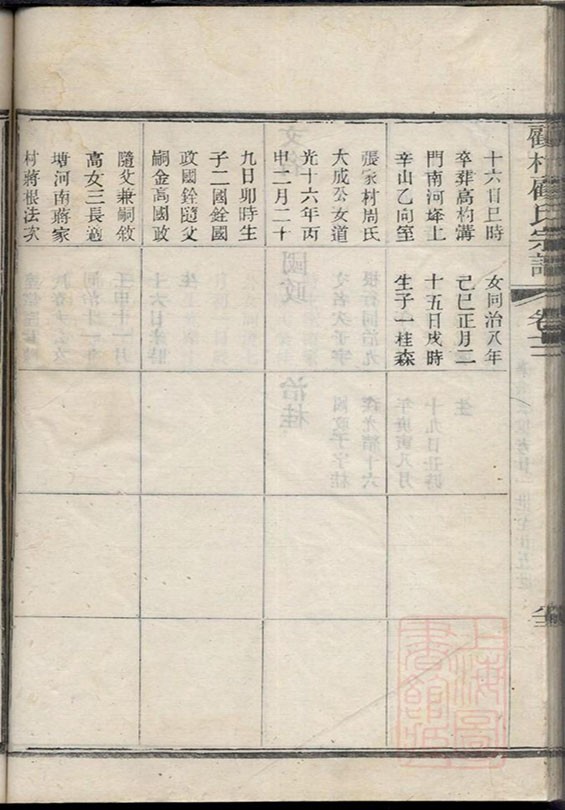 十六日巳時
卒葬高杓溝
門南河峰上
辛山乙向室
張家村周氏
大成公女道
光十六年丙
申二月二十
九日卯時生
子二國銓國
政國銓隨父
嗣金高國政
隨父兼嗣敘
高女三長適
塘河南蔣家
村蔣根法次
女同治八年
己巳正月二
十五日戌時
生子一桂森
上海圖書館藏